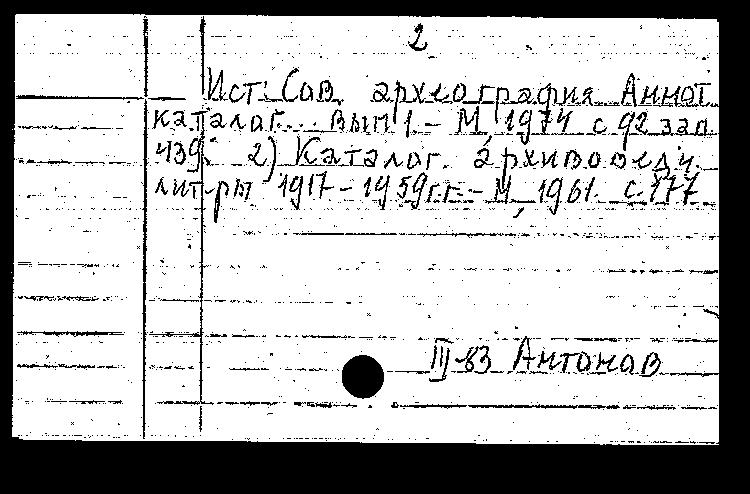 2
Ист: Сов. археография Аннот.
каталог... вып 1 - М, 1974 с 92 зап.
439. 2) Каталог. архивоведч.
лит-ры 1917-1959 г.г. - М, 1961. с.177
III-83 Антонов